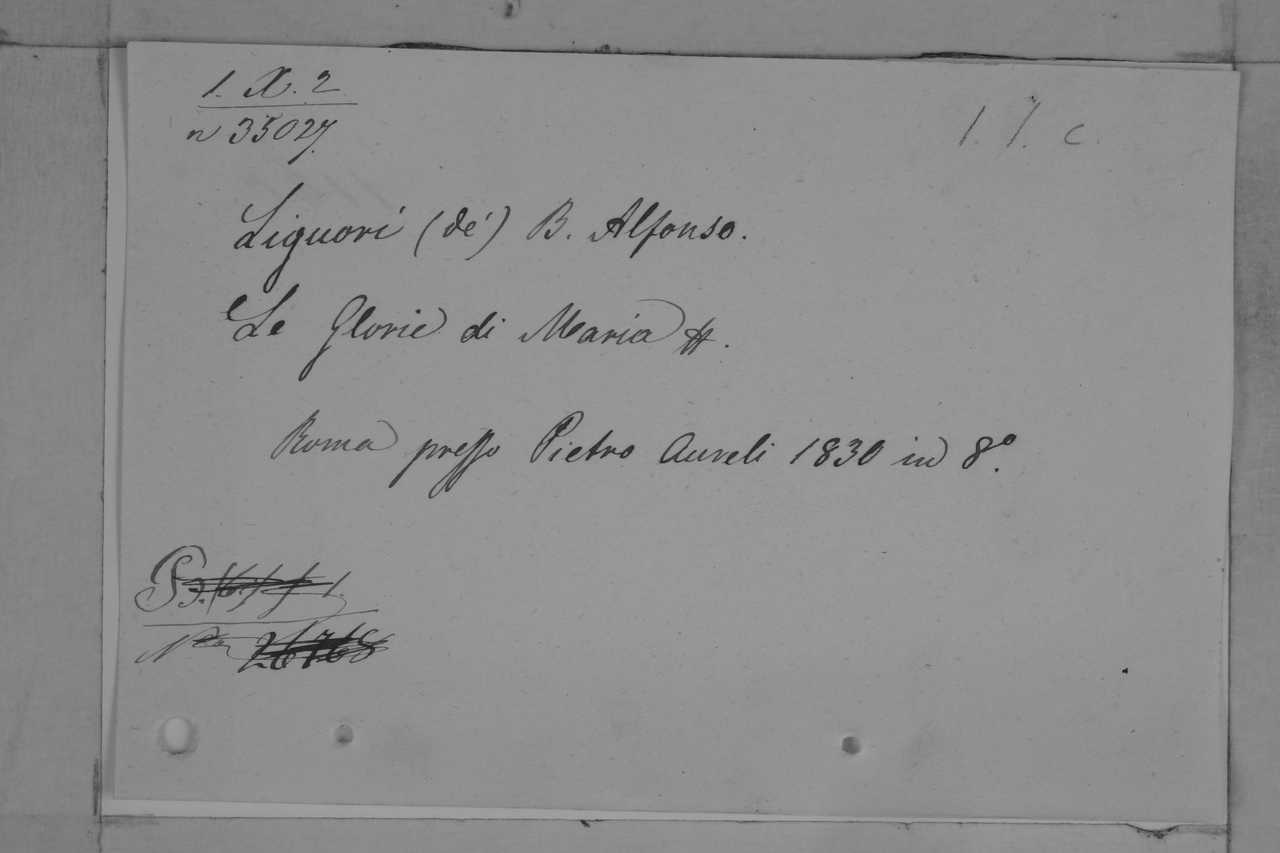 1. X. 2
n 35027.
1. 7. c.
Liguori (de') B. Alfonso.
Le Glorie di Maria #.
Roma presso Pietro Aureli 1830 in 8º.
26768